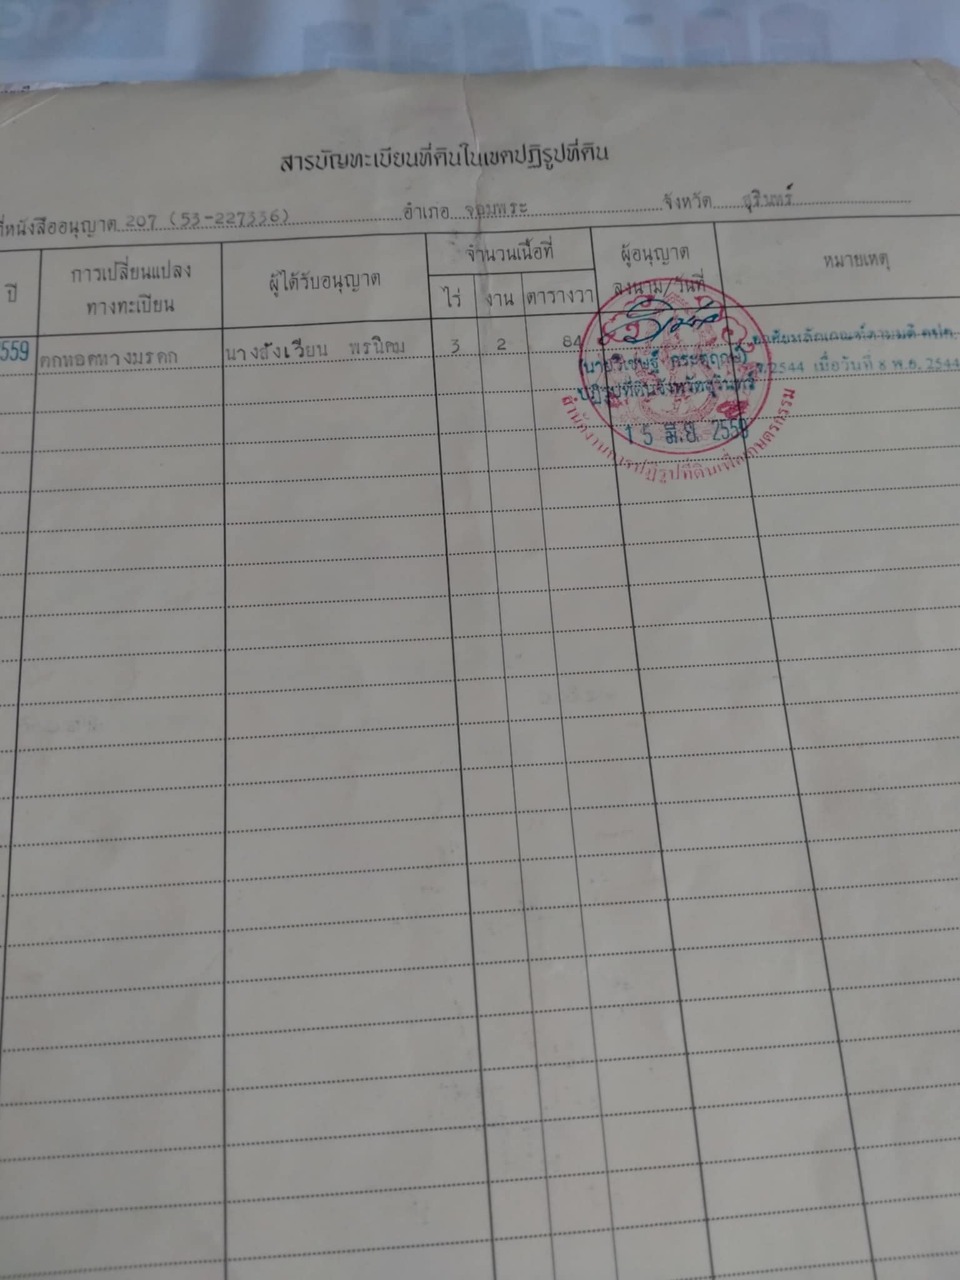 สารบัญทะเบียนที่ดินในเขตปฏิรูปที่ดิน
ที่หนังสืออนุญาต 207 (53-227336) อำเภอ จอมพระ จังหวัด สุรินทร์
ปี การเปลี่ยนแปลงทางทะเบียน ผู้ได้รับอนุญาต จำนวนเนื้อที่ ไร่ งาน ตารางวา ผู้อนุญาต ลงนาม/วันที่ หมายเหตุ
559 ตกทอดทางมรดก นางสังเวียน พรนิคม 3 2 84
ปฏิรูปที่ดินจังหวัดสุรินทร์
2544 เมื่อวันที่ 8 พ.ย. 2544
15 มิ.ย. 2559
สำนักงานการปฏิรูปที่ดินเพื่อเกษตรกรรม